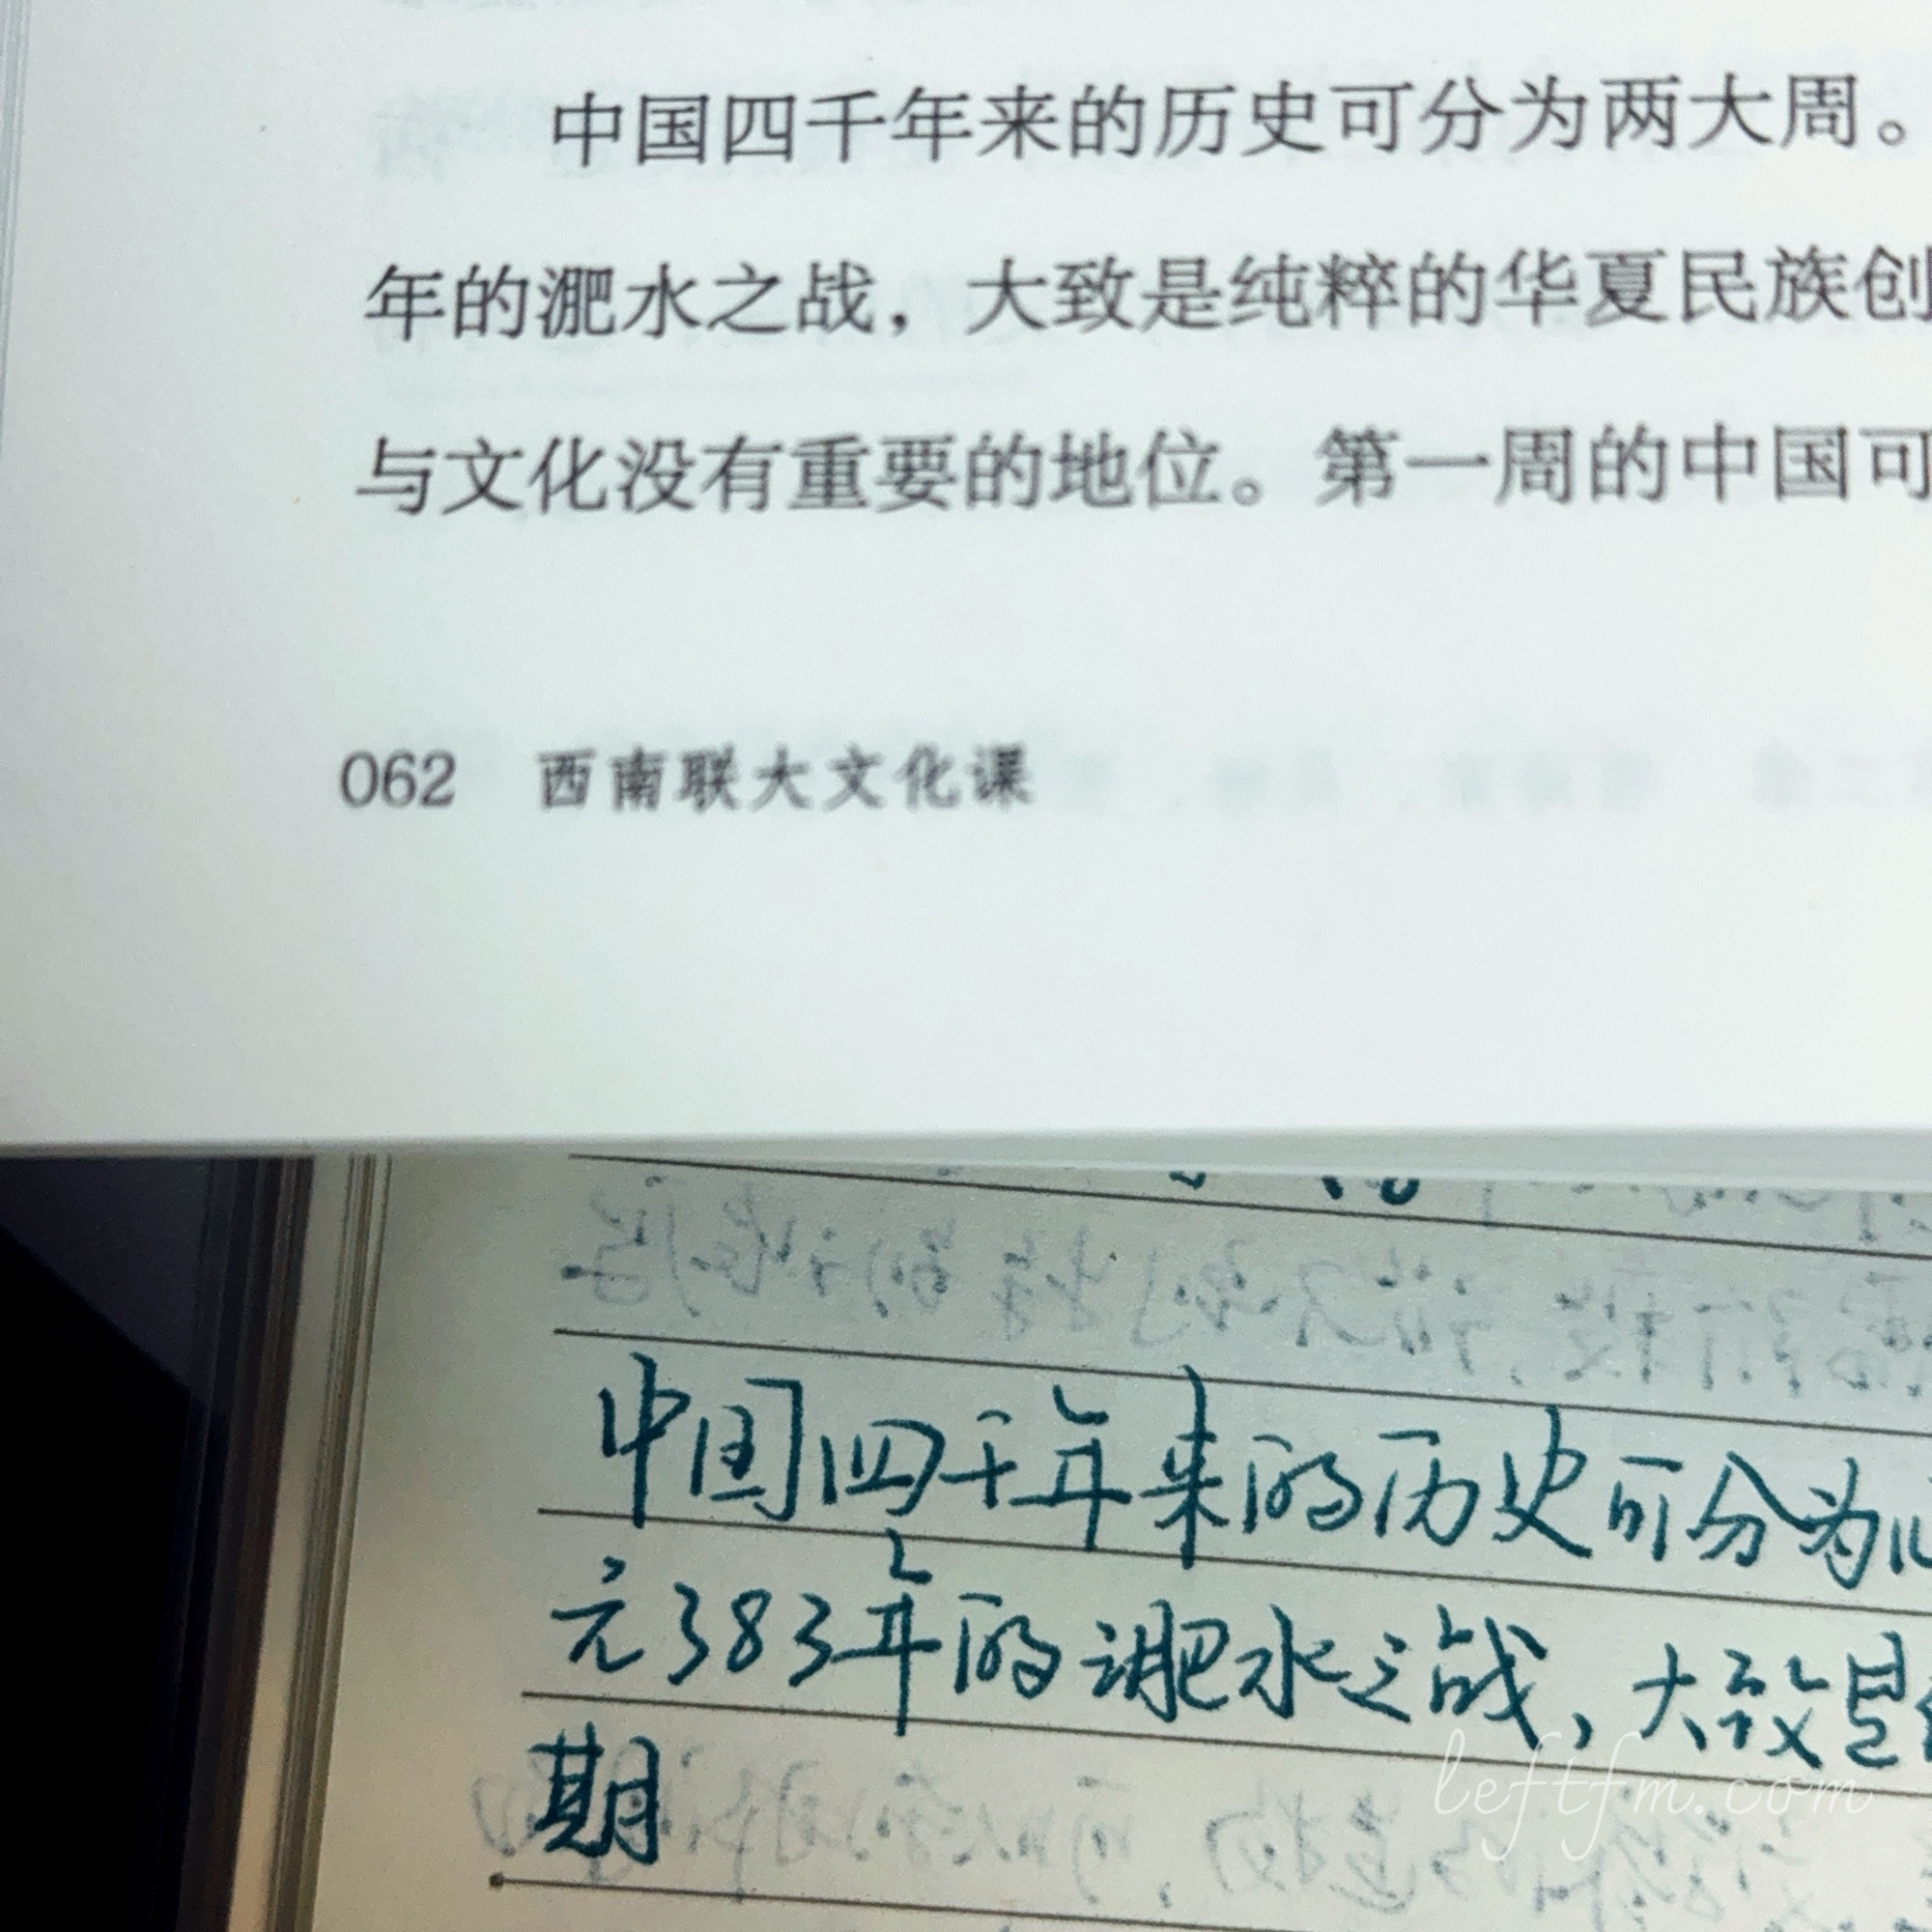 中国四千年来的历史可分为两大周。
年的淝水之战，大致是纯粹的华夏民族创
与文化没有重要的地位。第一周的中国可
062 西南联大文化课
中国四千年来的历史可分为
元383年的淝水之战，大致是
期
leftfm.com